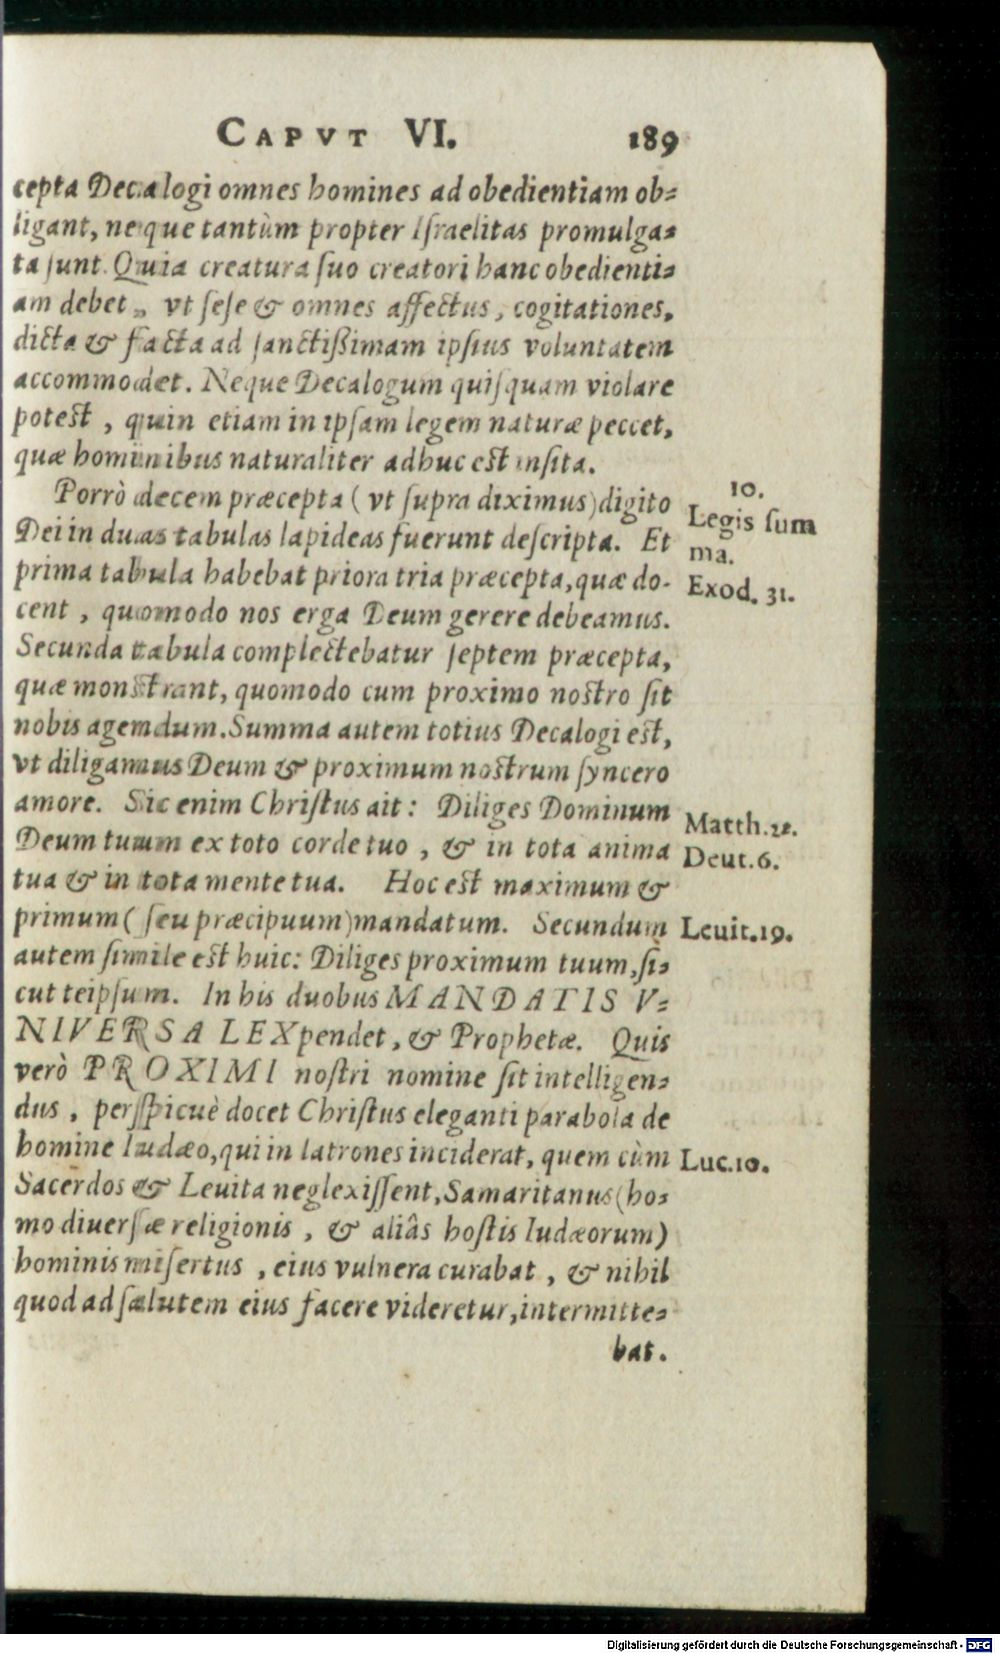 CAPVT VI. 189
cepta Decalogi omnes homines ad obedientiam ob-
ligant, neque tantùm propter Iſraelitas promulga-
ta ſunt. Quia creatura ſuo creatori hanc obedienti-
am debet, vt ſeſe & omnes affectus, cogitationes,
dicta & facta ad ſanctißimam ipſius voluntatem
accommodet. Neque Decalogum quiſquam violare
poteſt, quin etiam in ipſam legem naturæ peccet,
quæ hominibus naturaliter adhuc eſt inſita.
Porrò decem præcepta (vt ſupra diximus) digito
10.
Dei in duas tabulas lapideas fuerunt deſcripta. Et
Legis ſum
ma.
prima tabula habebat priora tria præcepta, quæ do-
Exod. 31.
cent, quomodo nos erga Deum gerere debeamus.
Secunda tabula complectebatur ſeptem præcepta,
quæ monſtrant, quomodo cum proximo noſtro ſit
nobis agendum. Summa autem totius Decalogi eſt,
vt diligamus Deum & proximum noſtrum ſyncero
amore. Sic enim Chriſtus ait: Diliges Dominum
Matth.22.
Deum tuum ex toto corde tuo, & in tota anima
Deut.6.
tua & in tota mente tua. Hoc eſt maximum &
primum (ſeu præcipuum) mandatum. Secundum
Leuit.19.
autem ſimile eſt huic: Diliges proximum tuum, ſi-
cut teipſum. In his duobus MANDATIS V-
NIVERSA LEX pendet, & Prophetæ. Quis
verò PROXIMI noſtri nomine ſit intelligen-
dus, perſpicuè docet Chriſtus eleganti parabola de
homine Iudæo, qui in latrones inciderat, quem cùm
Luc.10.
Sacerdos & Leuita neglexiſſent, Samaritanus (ho-
mo diuerſæ religionis, & aliâs hoſtis Iudæorum)
hominis miſertus, eius vulnera curabat, & nihil
quod ad ſalutem eius facere videretur, intermitte-
bat.
Digitalisierung gefördert durch die Deutsche Forschungsgemeinschaft - DFG